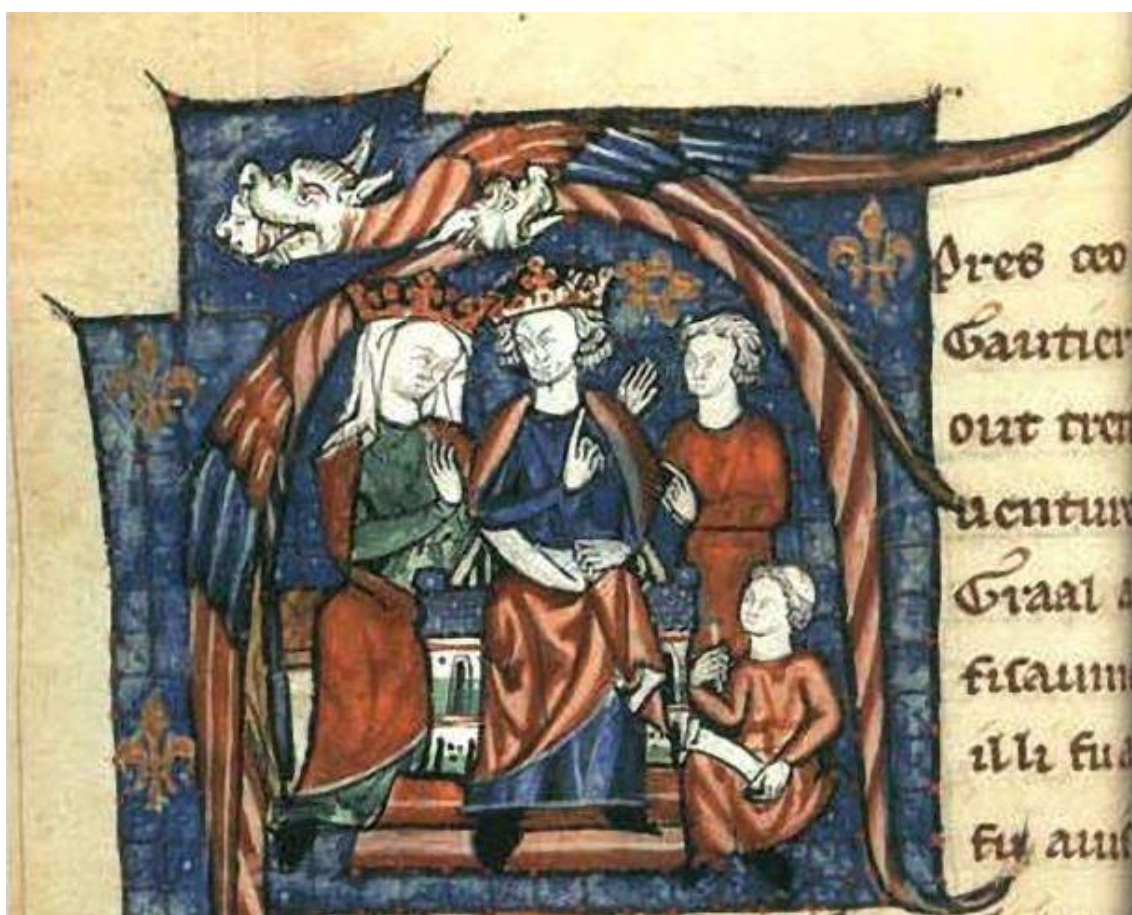 Pres ceo
Gautier
out tren
uentur
Graal a
fisaum
illi fu a
fu auis